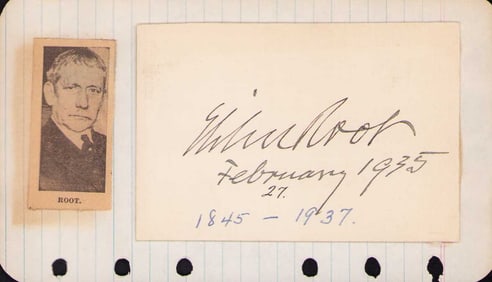 ROOT.
Elihu Root
February 1935
27.
1845 – 1937.